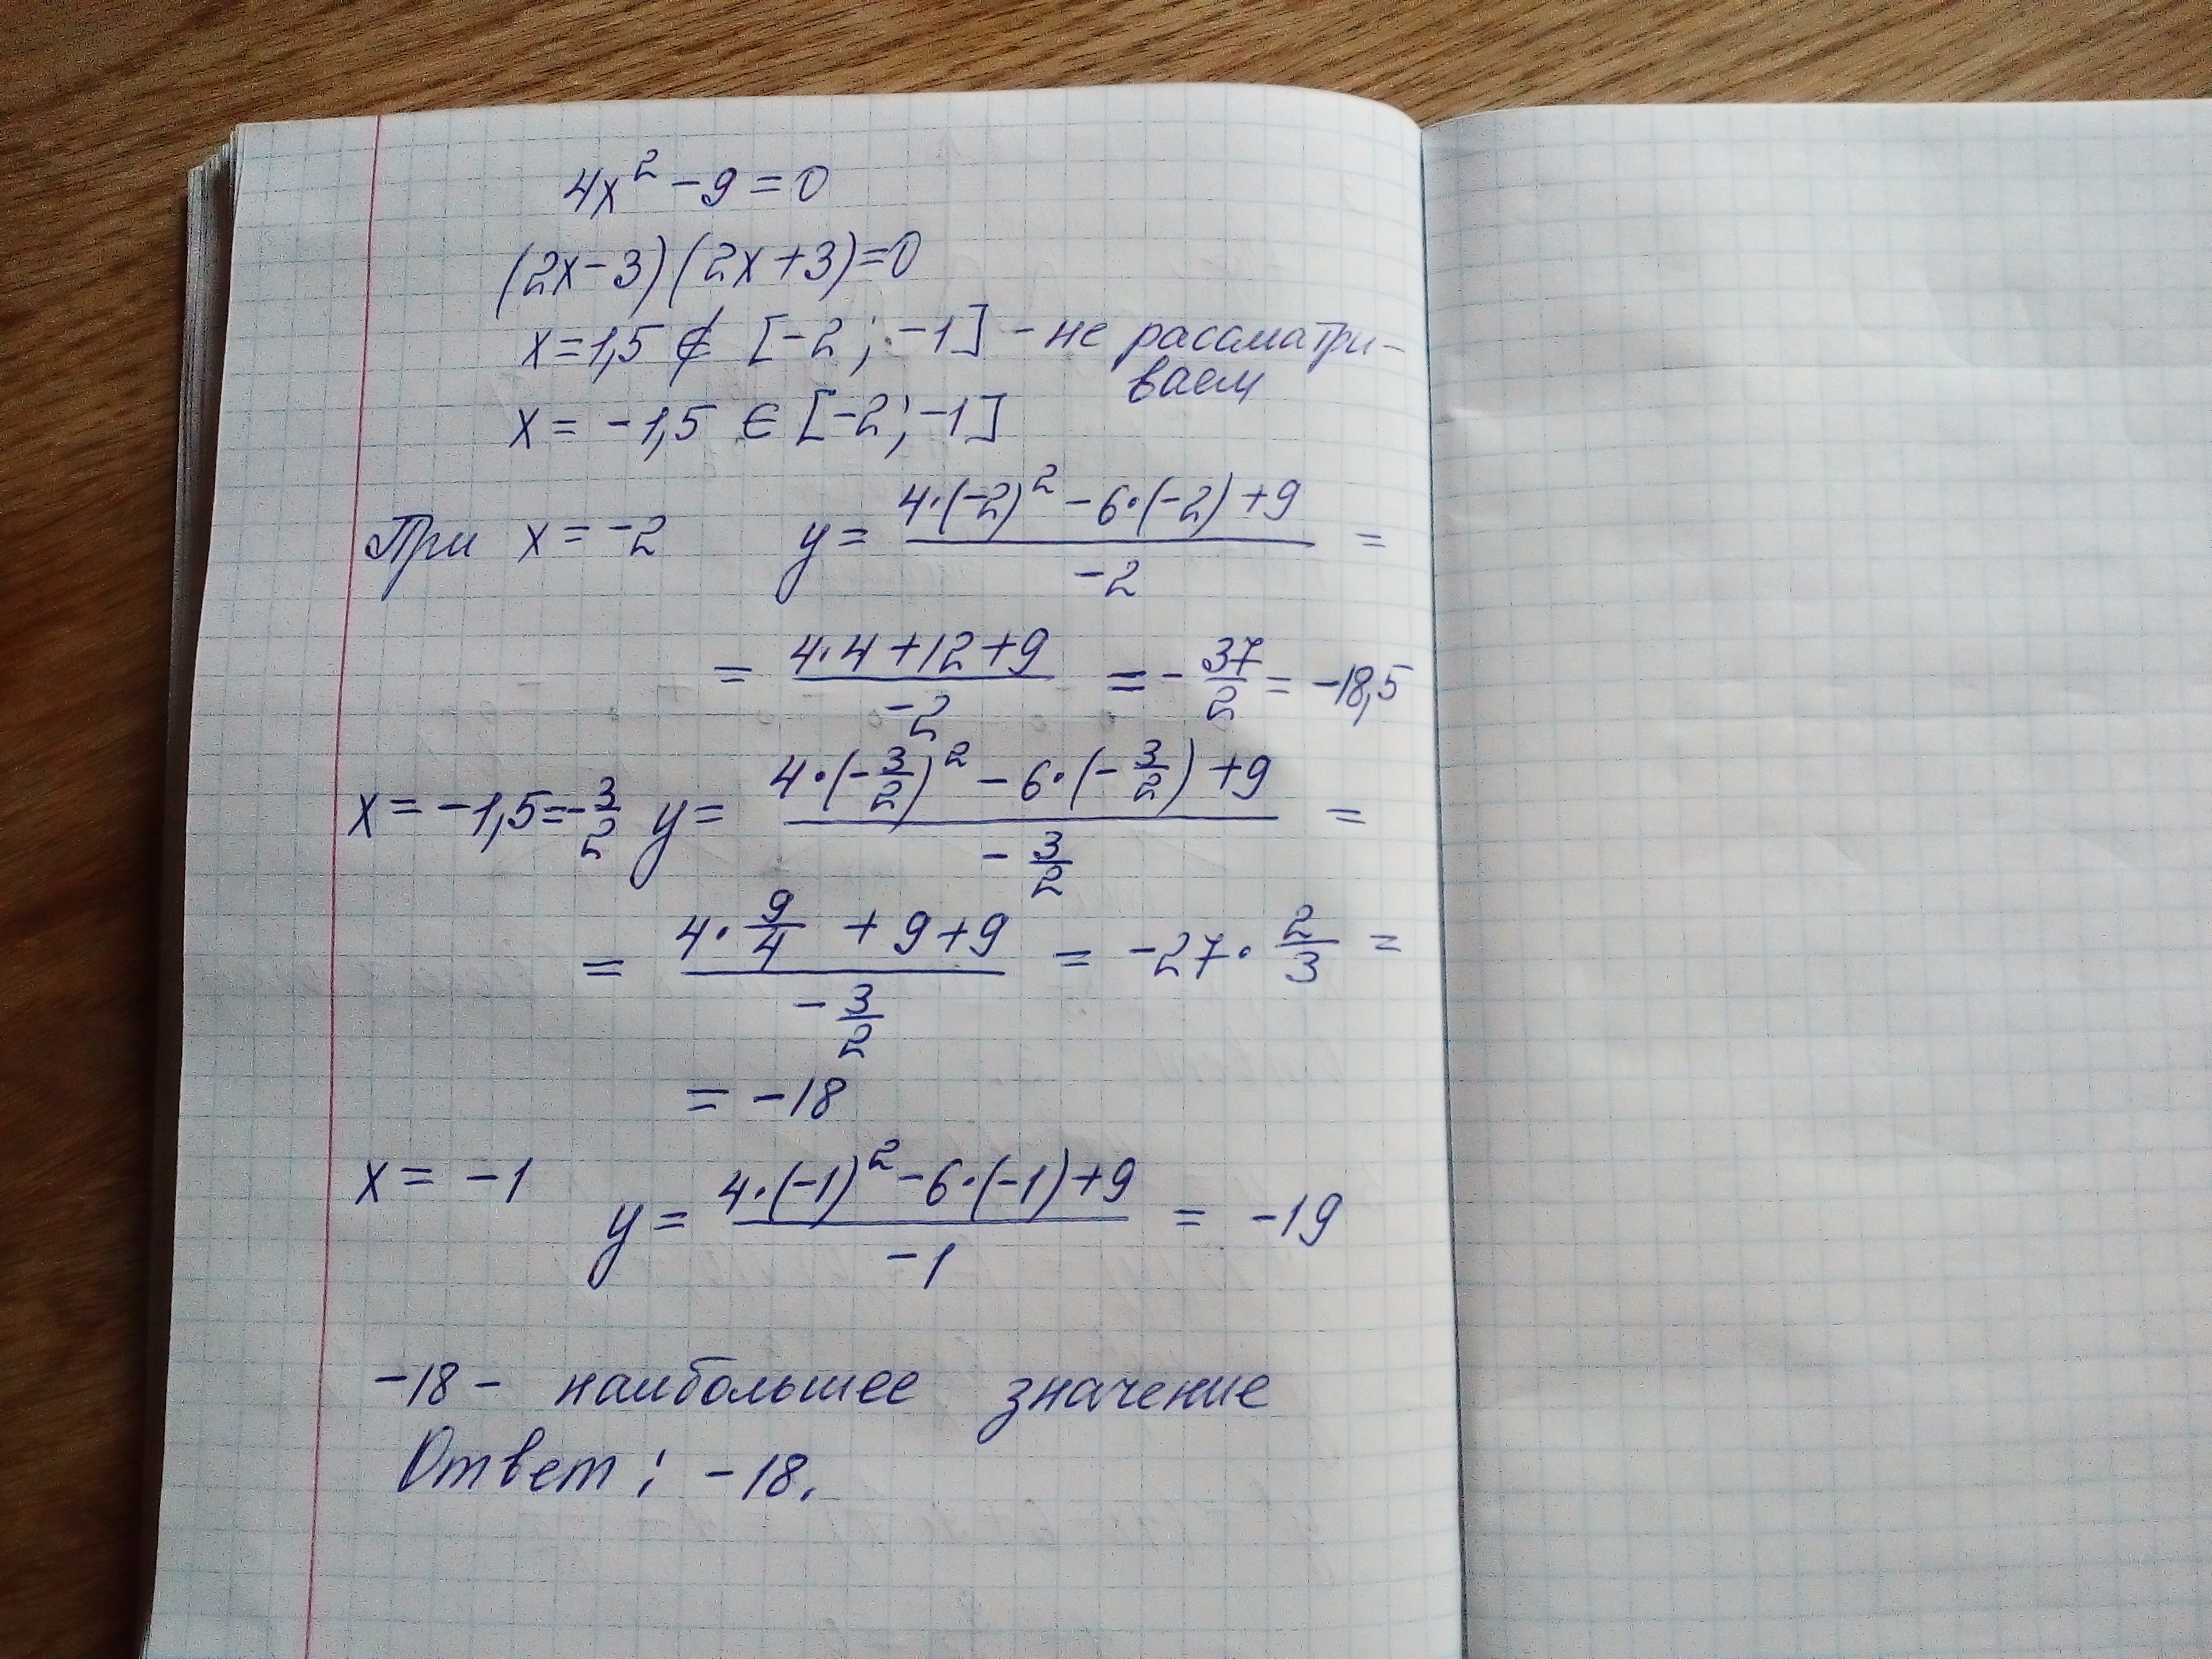 4x² - 9 = 0
(2x - 3)(2x + 3) = 0
x = 1,5 ∉ [-2; -1] - не рассматри-
ваем
x = -1,5 ∈ [-2; -1]
При x = -2 y = (4·(-2)² - 6·(-2) + 9)/(-2) =
= (4·4 + 12 + 9)/(-2) = -37/2 = -18,5
x = -1,5 = -3/2 y = (4·(-3/2)² - 6·(-3/2) + 9)/(-3/2) =
= (4·9/4 + 9 + 9)/(-3/2) = -27·2/3 =
= -18
x = -1 y = (4·(-1)² - 6·(-1) + 9)/(-1) = -19
-18 - наибольшее значение
Ответ: -18.